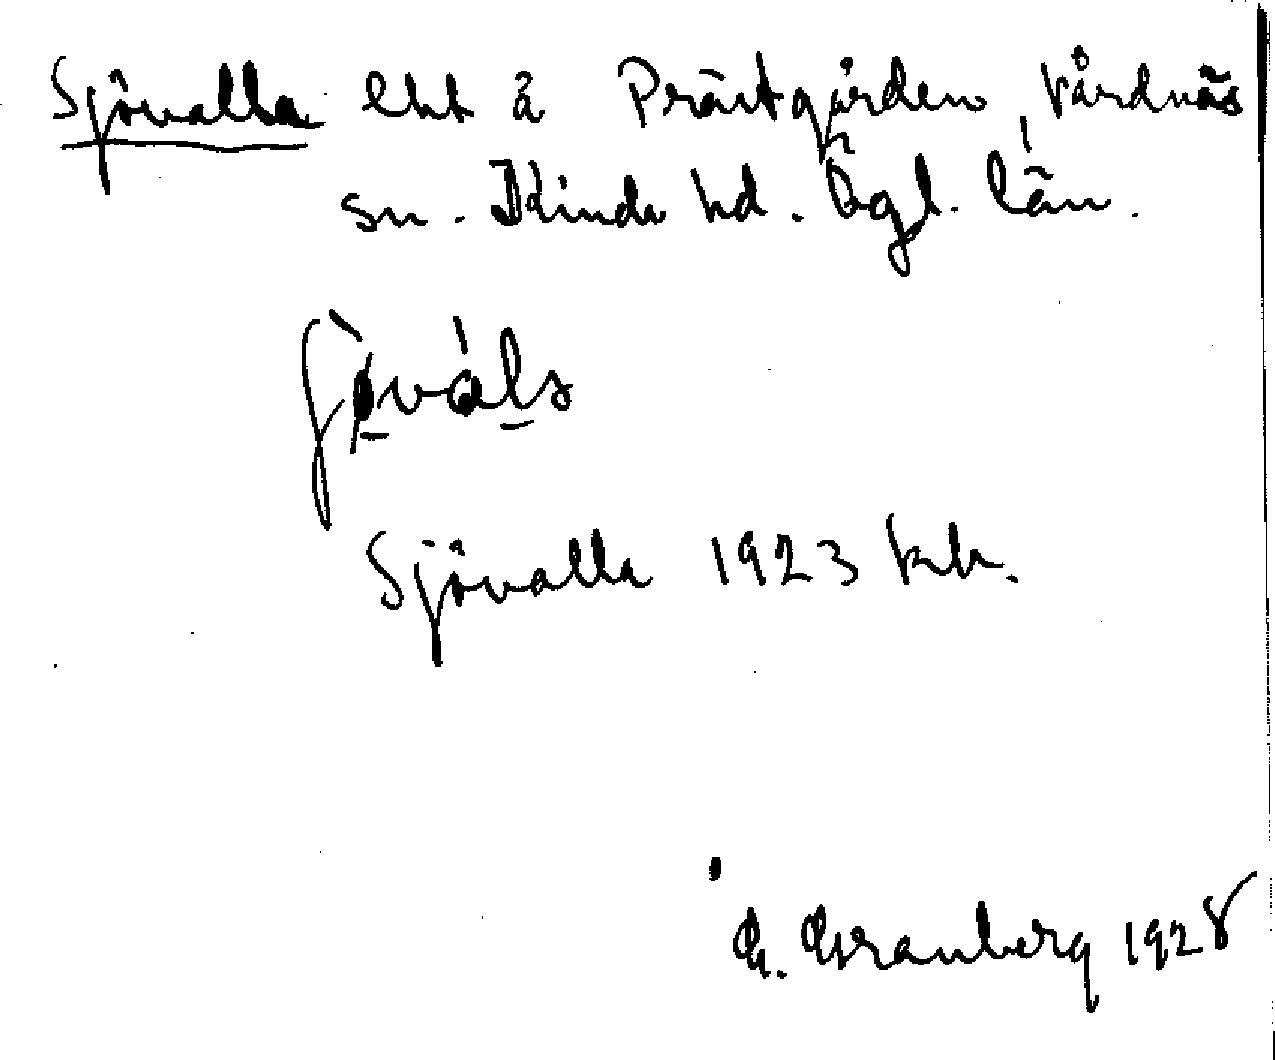 Sjövalla lht å Prästgården, Vårdnäs
sn. Kinda hd. Ögl. län.
Sjövalla 1923 kb.
G. Granberg 1928